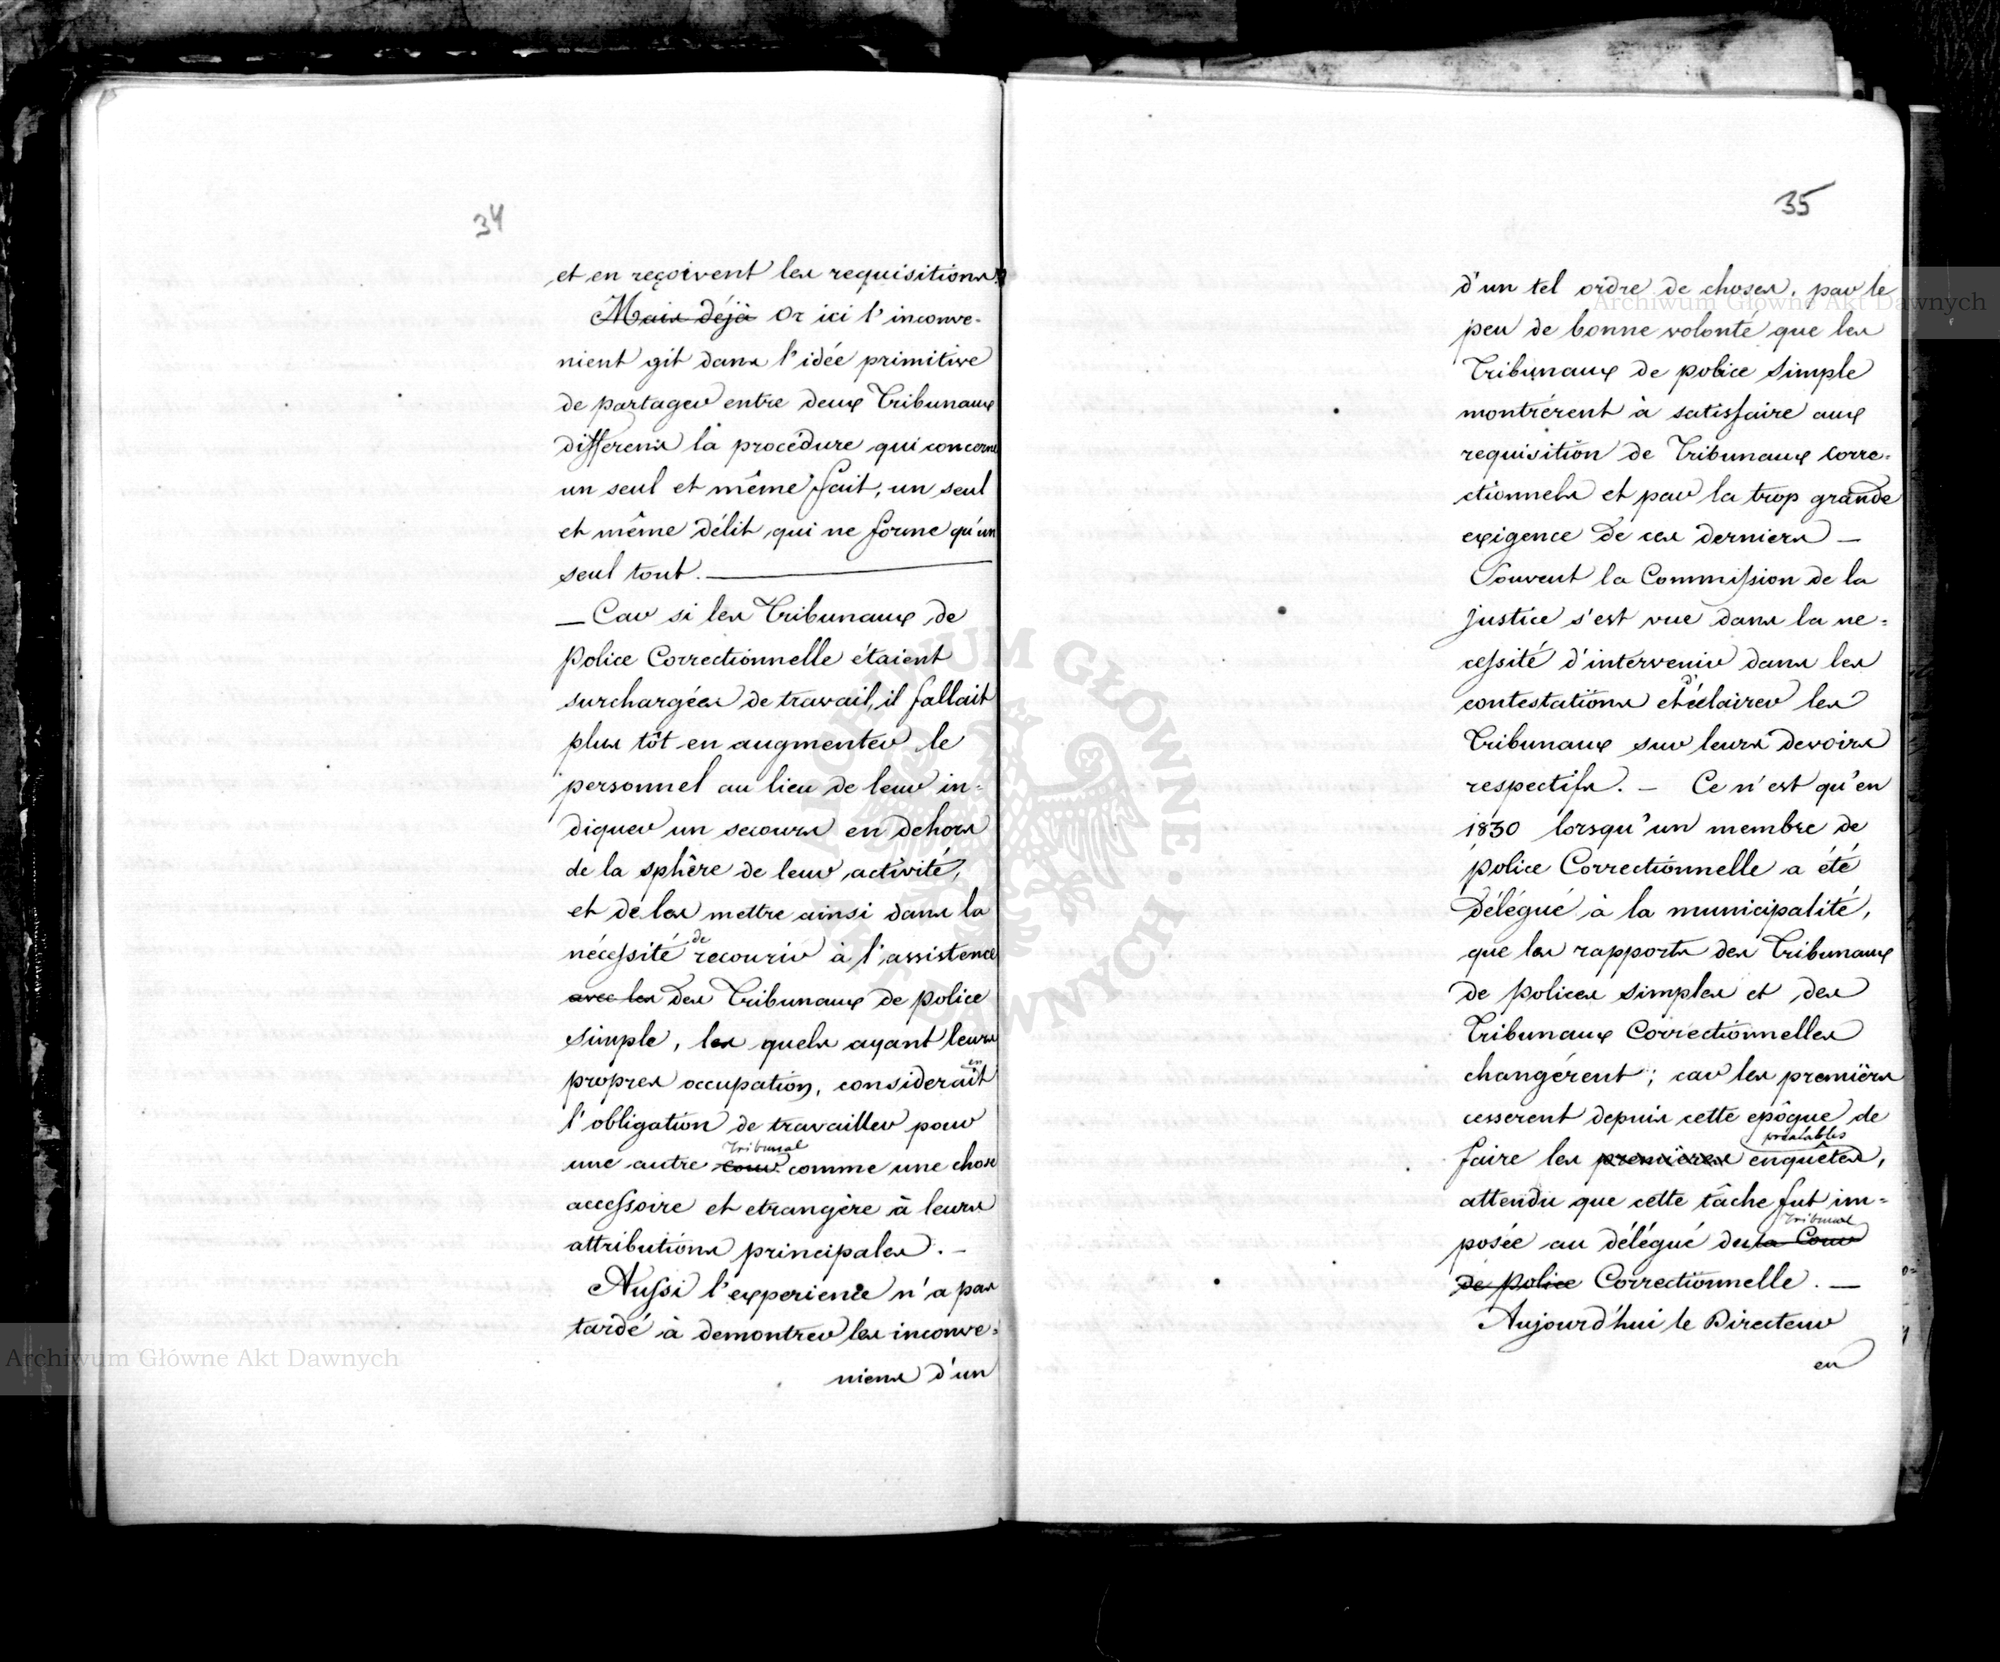 34
et en reçoivent les requisitions.
Mais déjà Or ici l'inconve-
nient git dans l'idée primitive
de partager entre deux Tribunaux
differens la procédure qui concerne
un seul et même fait, un seul
et même délit, qui ne forme qu'un
seul tout. —
— Car si les Tribunaux de
Police Correctionnelle étaient
surchargées de travail, il fallait
plus tôt en augmenter le
personnel au lieu de leur in-
diquer un secours en dehors
de la sphère de leur activité,
et de les mettre ainsi dans la
nécessité de recourir à l'assistence
avec les des Tribunaux de police
simple, les quels ayant leurs
propres occupation, consideraient
l'obligation de travailler pour
Tribunal
une autre Cour comme une chose
accessoire et etrangère à leurs
attributions principales. —
Aussi l'experience n'a pas
tardé à demontrer les inconve-
niens d'un
35
d'un tel ordre de choses, par le
peu de bonne volonté que les
Tribunaux de police simple
montrérent à satisfaire aux
requisition de Tribunaux corre-
ctionnels et par la trop grande
exigence de ces derniers —
Souvent la Commission de la
justice s'est vue dans la ne-
cessité d'intervenir dans les
contestations et d'éclairer les
Tribunaux sur leurs devoirs
respectifs. — Ce n'est qu'en
1830 lorsqu'un membre de
police Correctionnelle a été
délégué à la municipalité,
que les rapports des Tribunaux
de polices simples et des
Tribunaux Correctionnelles
changérent; car les premièrs
cesserent depuis cette epôque de
prealables
faire les premieres enquêtes,
attendu que cette tâche fut im-
Tribunal
posée au délégué du la Cour
de police Correctionnelle. —
Aujourd'hui le Directeur
en
Archiwum Główne Akt Dawnych
Archiwum Główne Akt Dawnych
ARCHIWUM GŁÓWNE AKT DAWNYCH